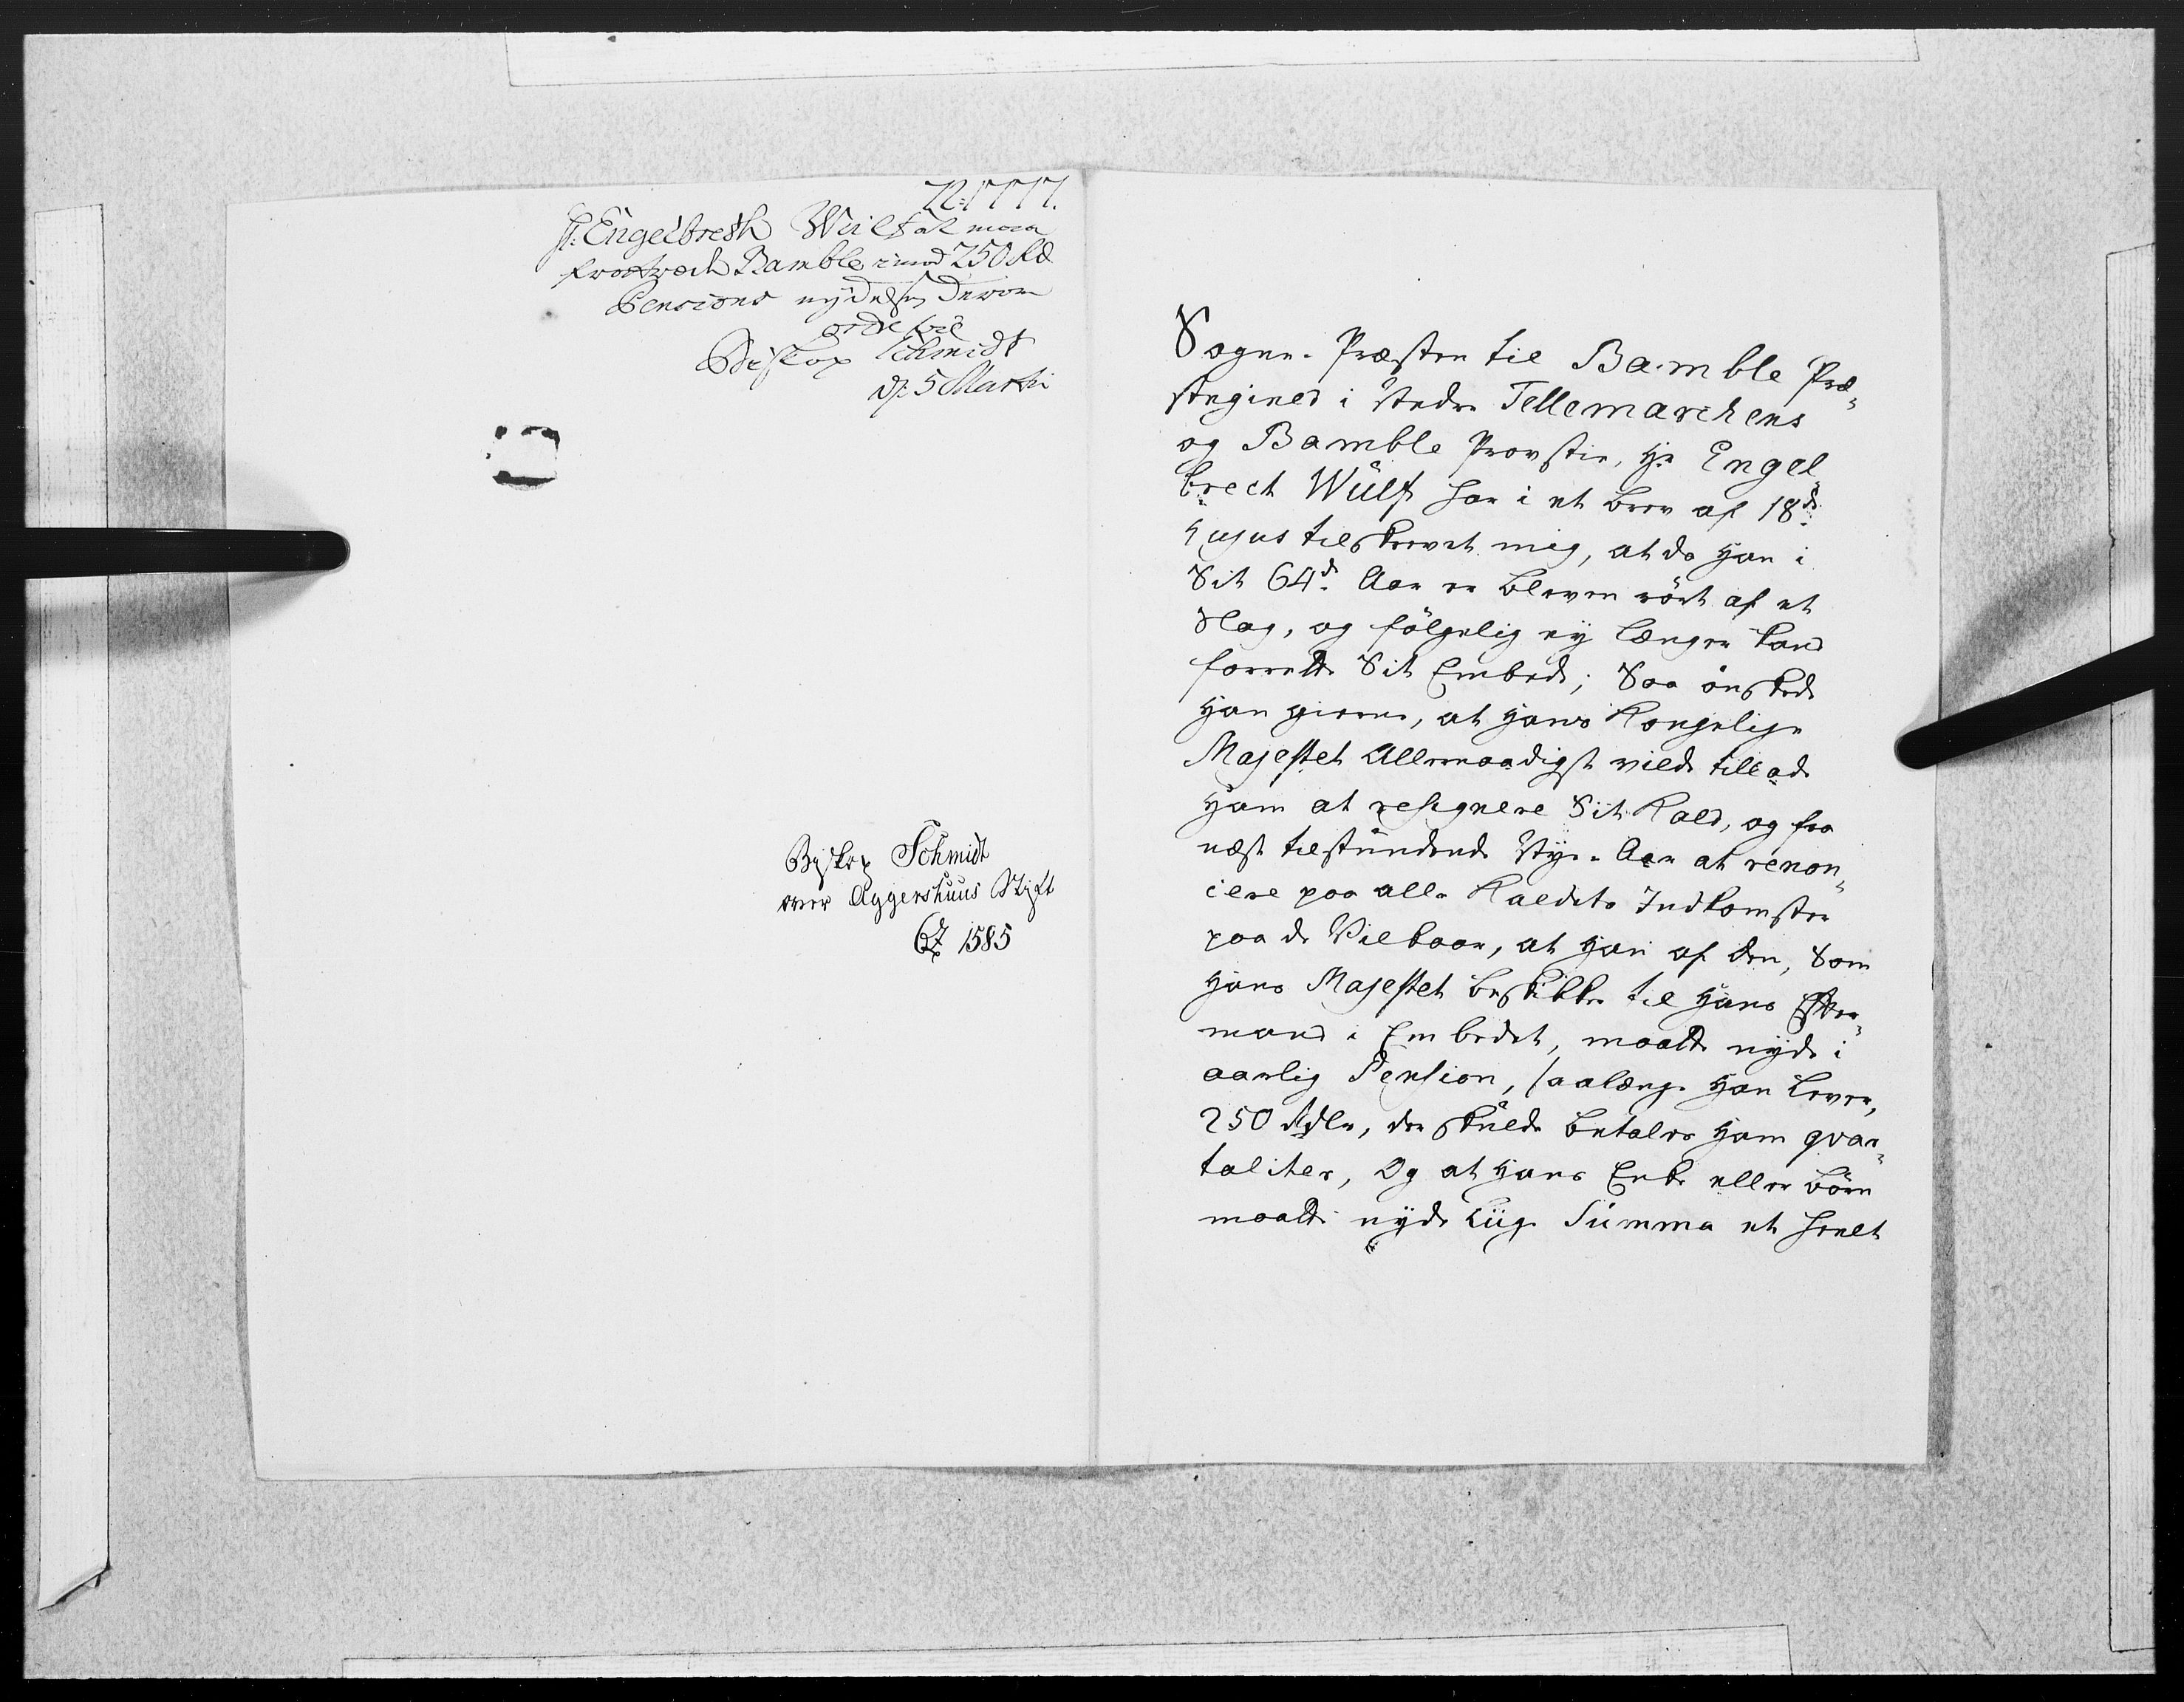 H: Engelbreth Wülf at maa
fratræde Bamble imod 250 Rd
Pensions nydelse derom
Biskop Schmidt
d: 5 Martii
Biskop Schmidt
over Aggershuus Stift
1585
Sogne-Præsten til Bamble Præ-
stegield i Nedre Tellemarchens
og Bamble Provstie, Hr Engel-
brect Wülf har i et brev af 18de
hujus tilskrevet mig, at da Han i
Sit 64de Aar er bleven rört af et
Slag, og fölgelig ey længer kand
forrette Sit Embede; Saa önskede
Han gierne, at Hans Kongelige
Majestet Allernaadigst vilde tillade
Ham at resignere Sit Kald, og fra
næst tilstundende Nye-Aar at renon-
cere paa alle Kaldets Indkomster
paa de Vilkaar, at Han af den, Som
Hans Majestet beskikker til Hans Efter-
mand i Embedet, maatte nyde i
aarlig Pension, saalænge Han lever,
250 Rdlr, der skulde betales Ham qvar-
taliter, Og at Hans Enke eller börn
maatte nyde liige Summa et heelt